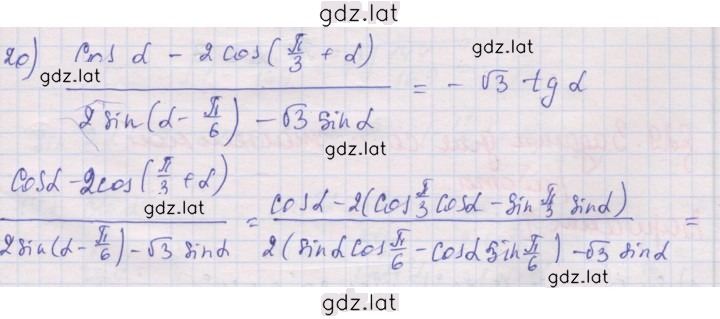 gdz.lat
20) (cos α - 2 cos(π/3 + α)) / (2 sin(α - π/6) - √3 sin α) = - √3 tg α
gdz.lat
gdz.lat
gdz.lat
(cos α - 2cos(π/3 + α)) / (2 sin(α - π/6) - √3 sin α) = (cos α - 2(cos π/3 cos α - sin π/3 sin α)) / (2(sin α cos π/6 - cos α sin π/6) - √3 sin α) =
gdz.lat
gdz.lat
gdz.lat